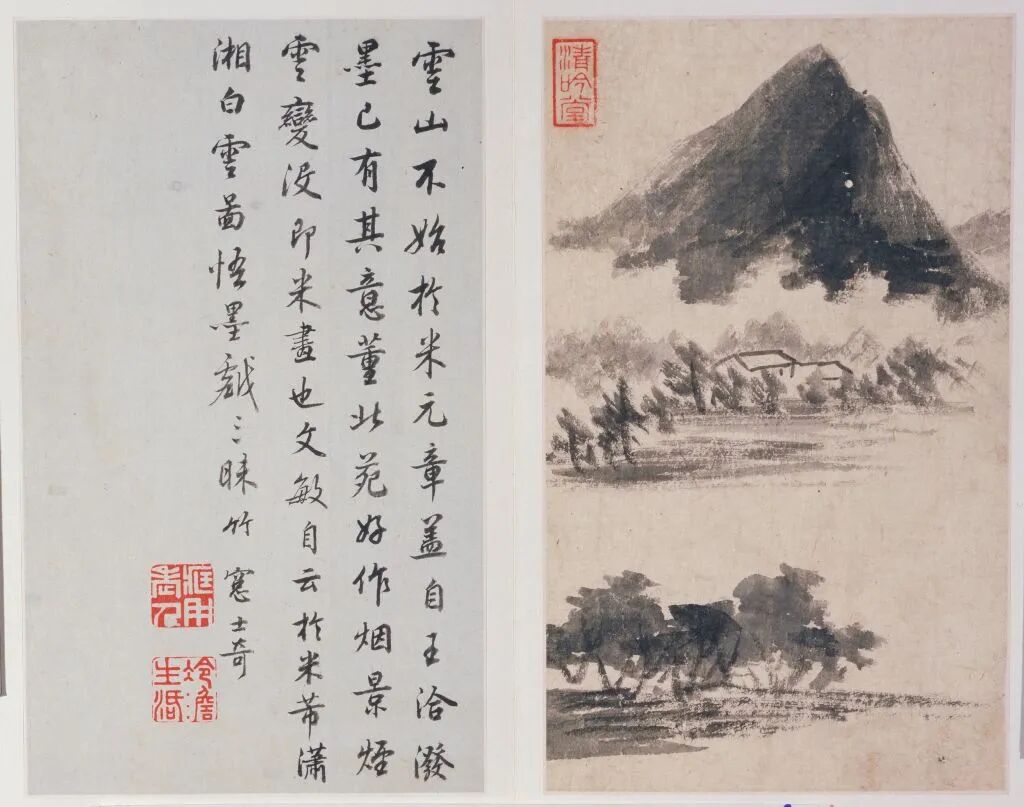 清吟堂
雲山不始於米元章蓋自王洽潑
墨已有其意董北苑好作烟景煙
雲變没即米畫也文敏自云於米芾瀟
湘白雲啚悟墨戲三昧竹窓士奇
冷澹生活